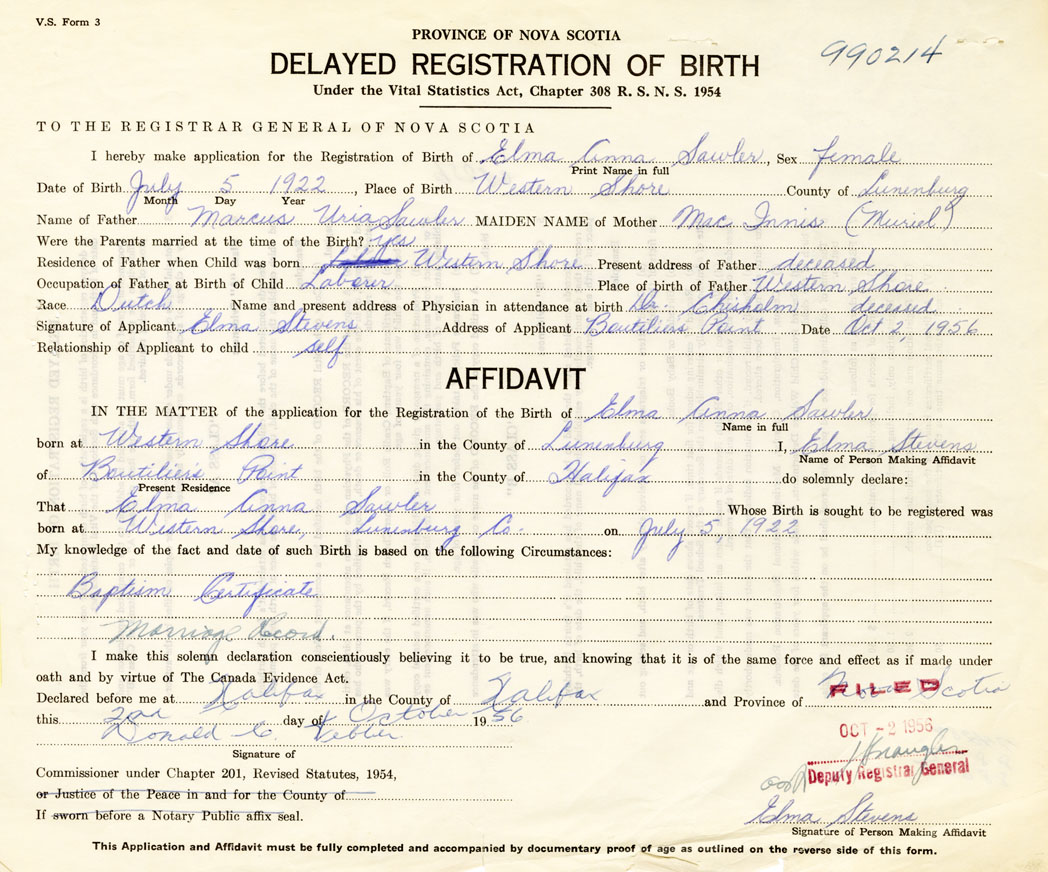 V.S. Form 3
PROVINCE OF NOVA SCOTIA
990214
DELAYED REGISTRATION OF BIRTH
Under the Vital Statistics Act, Chapter 308 R. S. N. S. 1954
TO THE REGISTRAR GENERAL OF NOVA SCOTIA
I hereby make application for the Registration of Birth of Elma Anna Sawler, Sex female
Print Name in full
Date of Birth July 5 1922, Place of Birth Western Shore County of Lunenburg
Month Day Year
Name of Father Marcus Uria Sawler MAIDEN NAME of Mother Mac Innis (Muriel)
Were the Parents married at the time of the Birth? yes
Residence of Father when Child was born Western Shore Present address of Father deceased
Occupation of Father at Birth of Child Laborer Place of birth of Father Western Shore
Race Dutch Name and present address of Physician in attendance at birth Dr. Chisholm deceased
Signature of Applicant Elma Stevens Address of Applicant Boutiliers Point Date Oct 2, 1956
Relationship of Applicant to child self
AFFIDAVIT
IN THE MATTER of the application for the Registration of the Birth of Elma Anna Sawler
Name in full
born at Western Shore in the County of Lunenburg I, Elma Stevens
Name of Person Making Affidavit
of Boutilier's Point in the County of Halifax do solemnly declare:
Present Residence
That Elma Anna Sawler Whose Birth is sought to be registered was
born at Western Shore, Lunenburg Co. on July 5, 1922
My knowledge of the fact and date of such Birth is based on the following Circumstances:
Baptism Certificate
Marriage Record.
I make this solemn declaration conscientiously believing it to be true, and knowing that it is of the same force and effect as if made under
oath and by virtue of The Canada Evidence Act.
Declared before me at Halifax in the County of Halifax and Province of Nova Scotia
FILED
this 2nd day of October 1956
OCT - 2 1956
Donald C.
Signature of
Deputy Registrar General
Commissioner under Chapter 201, Revised Statutes, 1954,
or Justice of the Peace in and for the County of
If sworn before a Notary Public affix seal.
Elma Stevens
Signature of Person Making Affidavit
This Application and Affidavit must be fully completed and accompanied by documentary proof of age as outlined on the reverse side of this form.